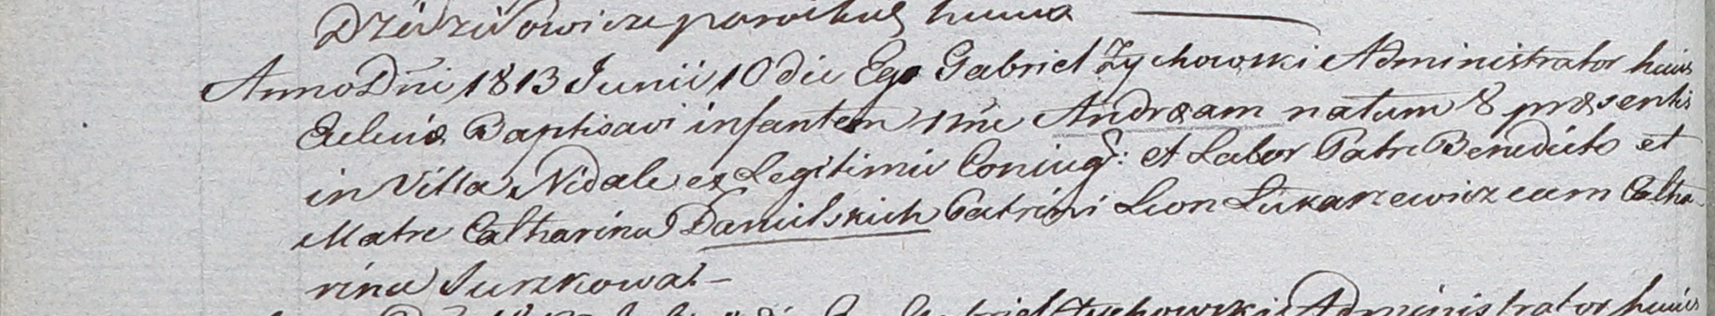 Dziedziłowicze parochus huius
Anno Dni 1813 Junii 10 die Ego Gabriel Zychowski Administrator huius
Ecclesiæ Baptisavi infantem nne Andræam natum 8 præsentis
in Villa Nidale ex Legitimis Coniug: et Labor Patre Benedicto et
Matre Catharina Danielskich Patrini Leon Łukaszewicz cum Catha
rina Juszkowa
Gabriel Zychowski Administrator huius